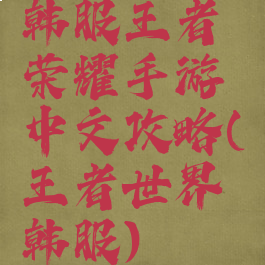 韩服王者
荣耀手游
中文攻略(
王者世界
韩服)